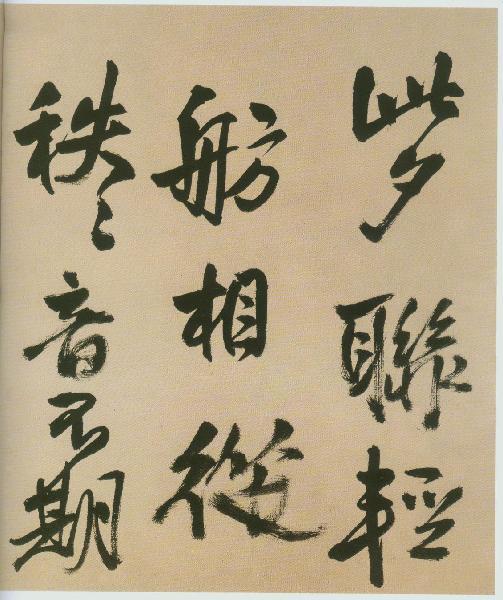 此夕聯輕
舫相從
秩〻音不期